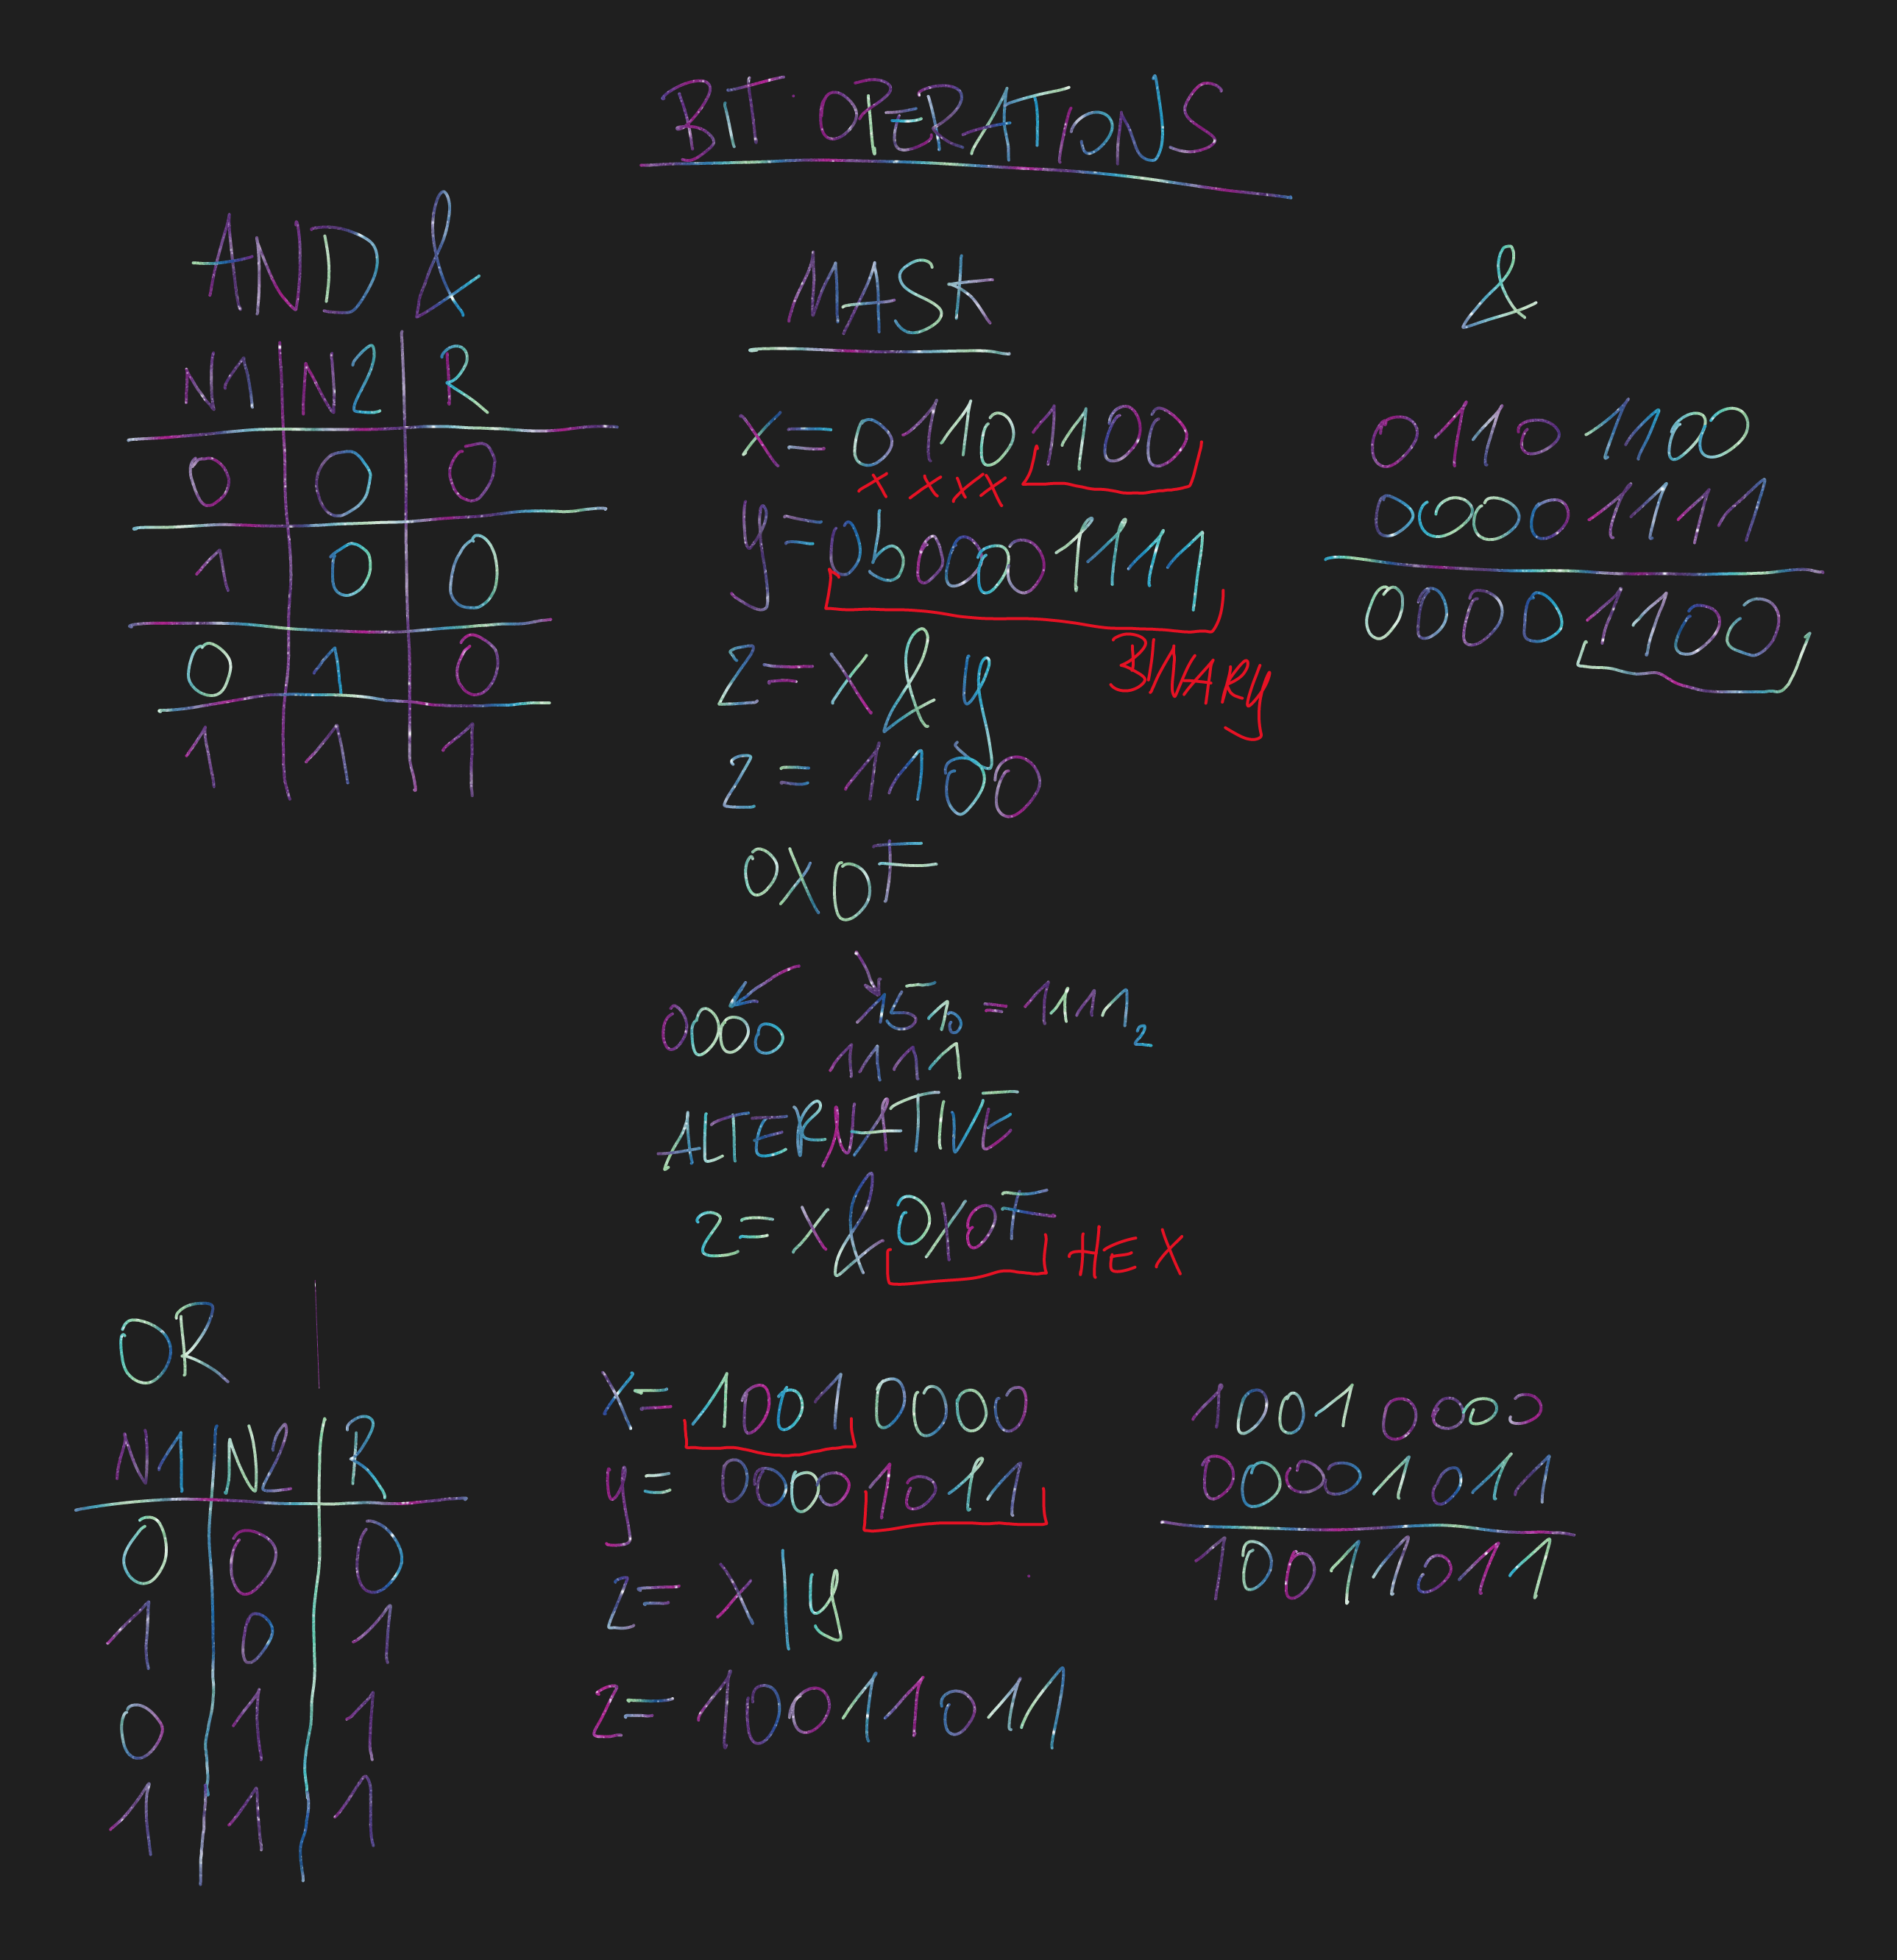 BIT OPERATIONS
AND &
N1 N2 R
0 0 0
1 0 0
0 1 0
1 1 1
MASK
X = 0110 1100
x x x x
y = 0b00001111
BINARY
Z = X & y
Z = 1100
0X0F
0000 15₁₀ = 1111₂
1111
ALTERNATIVE
Z = X & 0X0F
HEX
&
0110 1100
0000 1111
0000 1100
OR |
N1 N2 R
0 0 0
1 0 1
0 1 1
1 1 1
X = 1001 0000
y = 0000 1011
Z = X | y
Z = 10011011
1001 0000
0000 1011
10011011